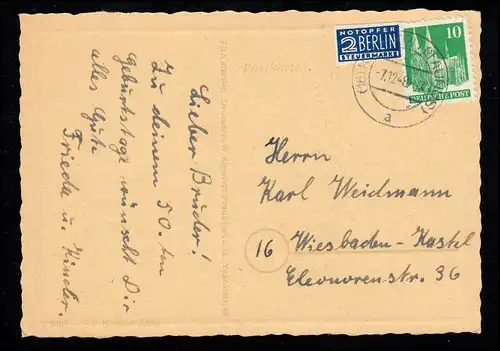 Lieber Bruder!
Zu deinem 50. ten
Geburtstage wünscht Dir
alles Gute
Friede u. Kinder.
NOTOPFER
2 BERLIN
STEUERMARKE
10
DEUTSCHE POST
a
Herrn
Karl Weidmann
16 Wiesbaden-Kastel
Eleonorenstr. 36